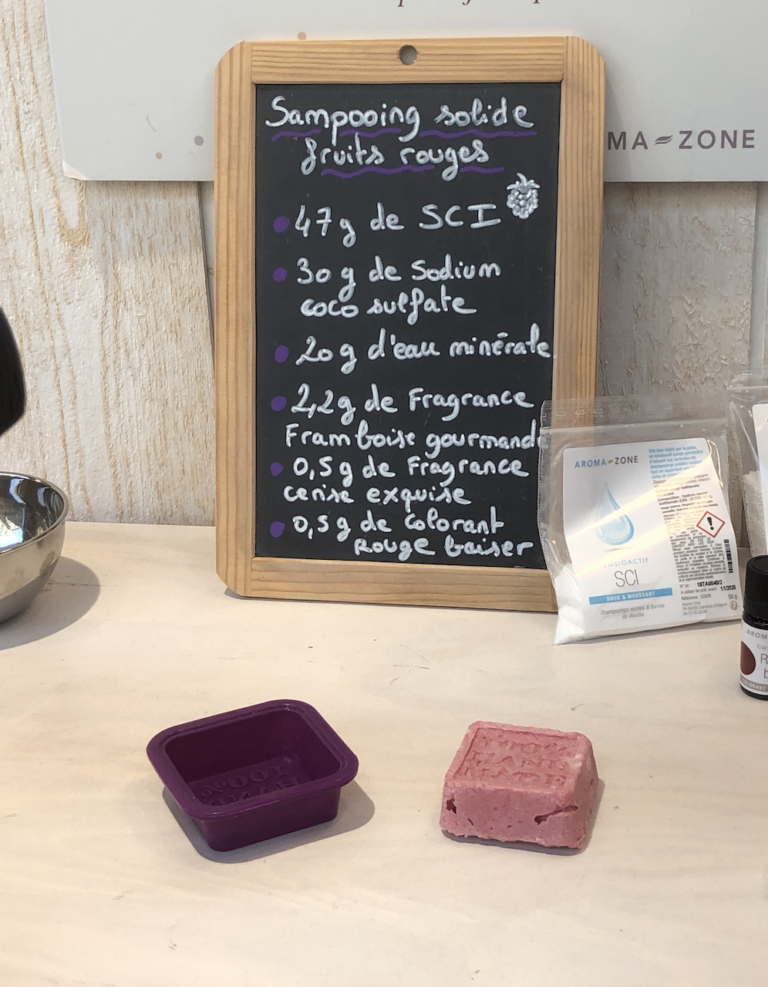 MA-ZONE
Sampooing solide
fruits rouges
47g de SCI
30 g de Sodium
coco sulfate
20 g d'eau minérale
2,2g de Fragrance
Framboise gourmande
0,5g de Fragrance
cerise exquise
0,5g de Colorant
Rouge baiser
AROMA-ZONE
SCI
DOUX & MOUSSANT
11/2020
100%
HAND
MADE